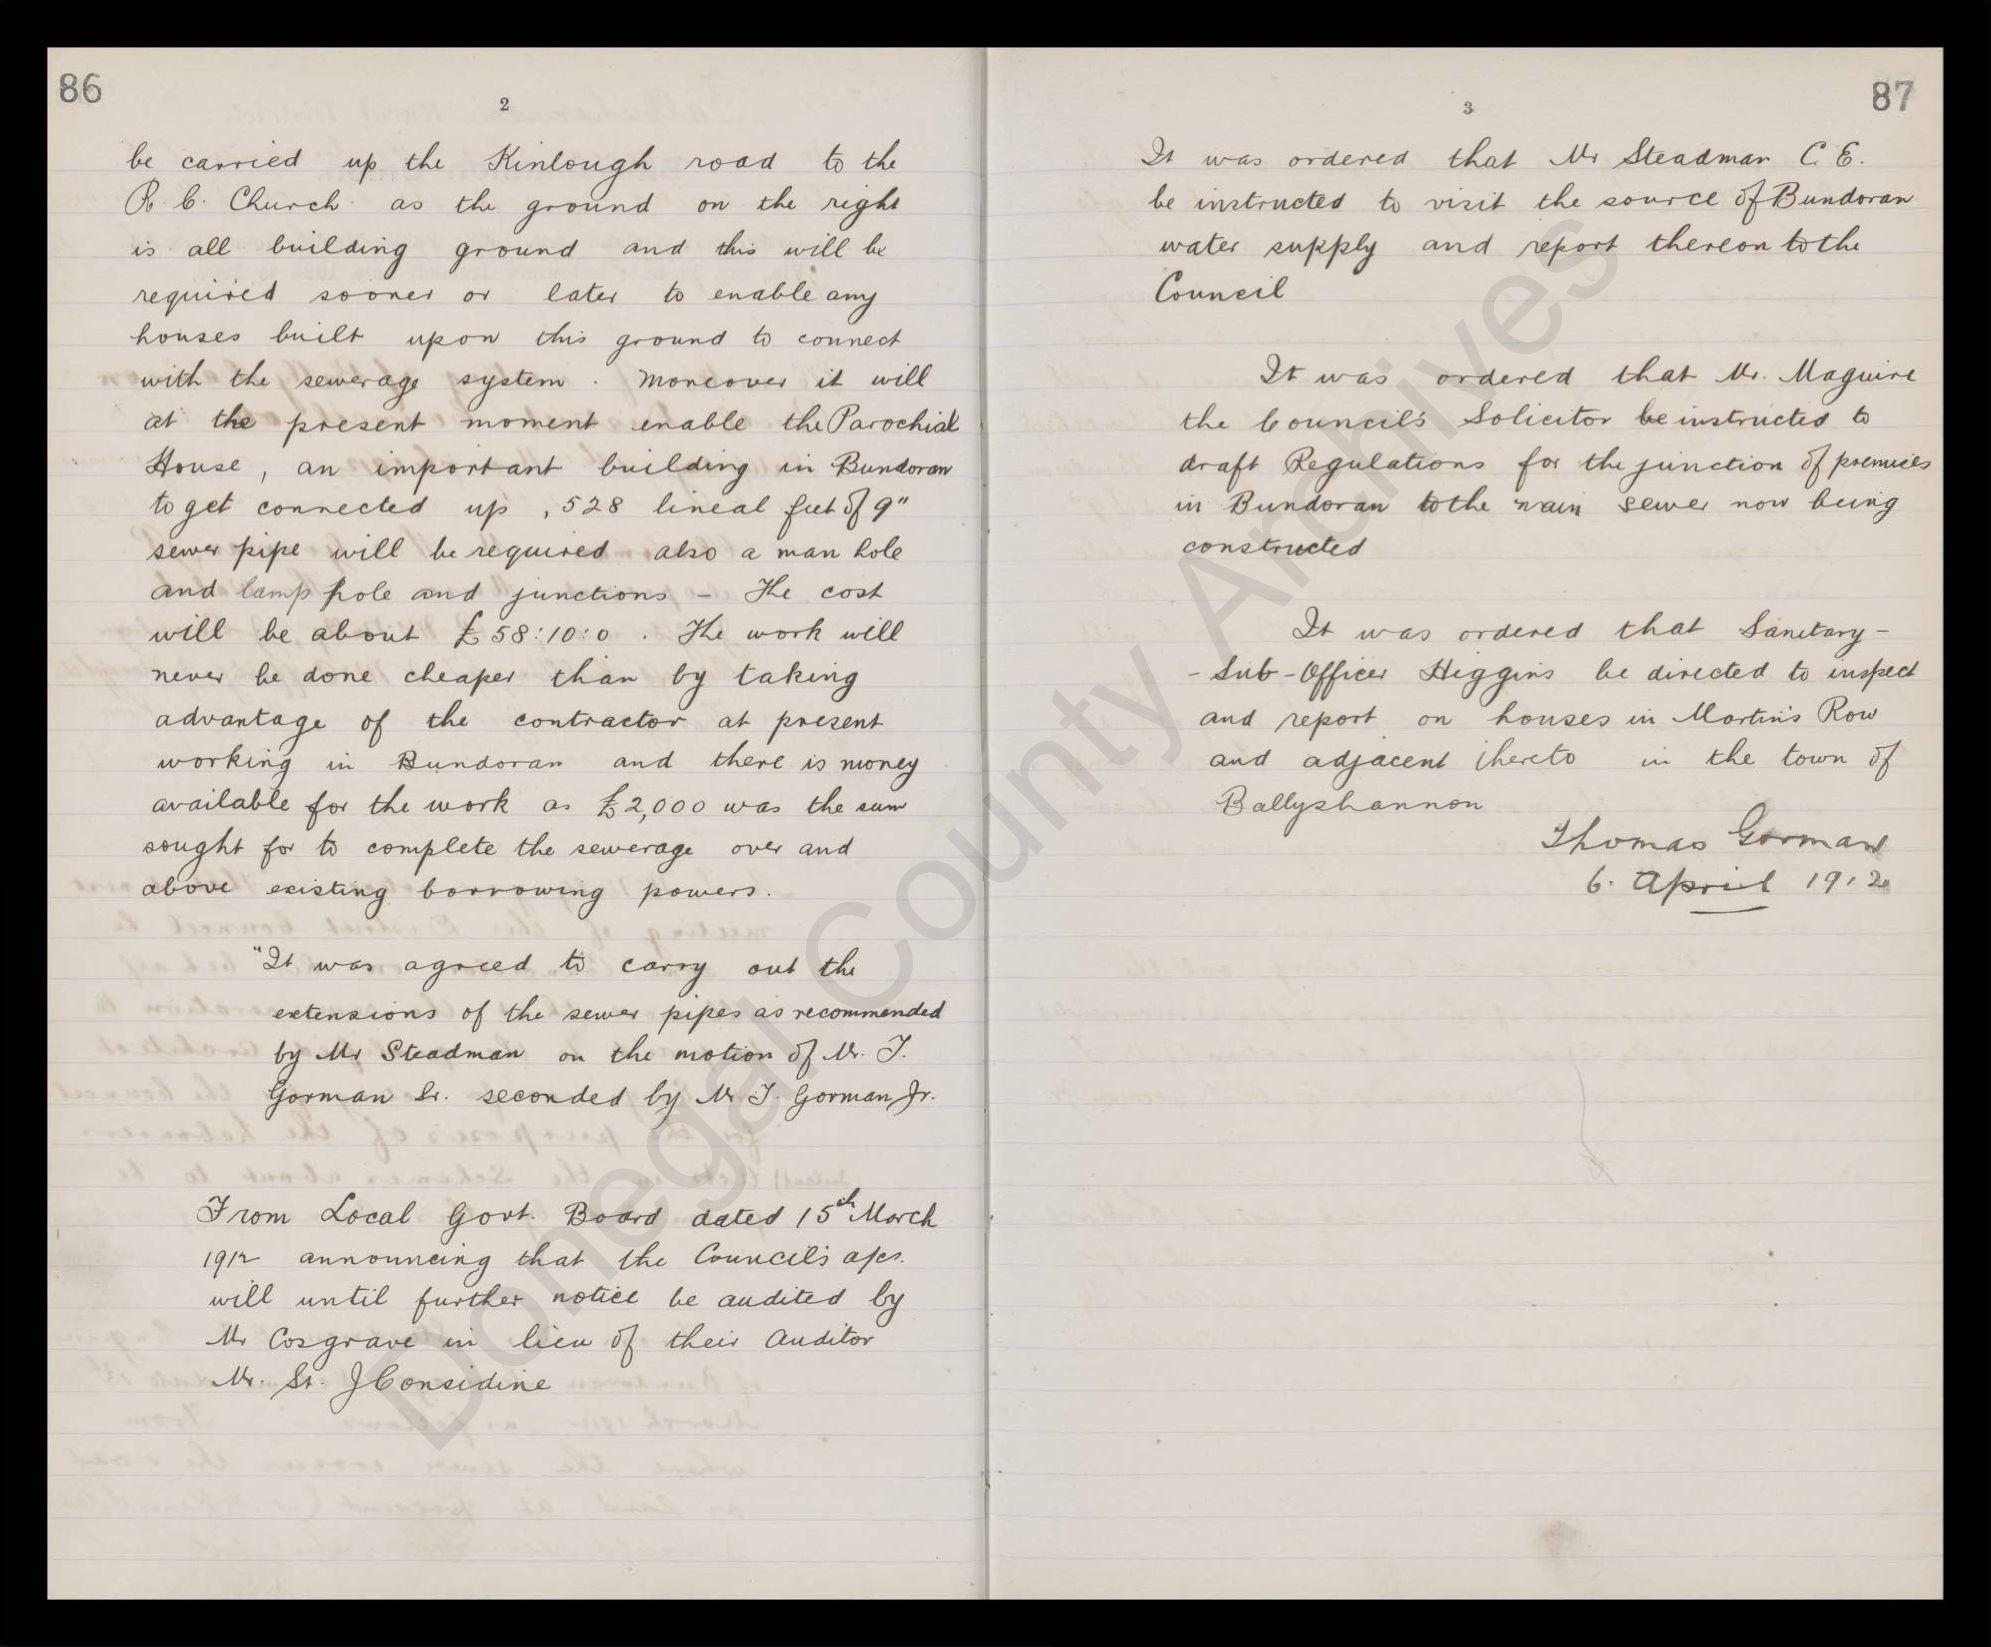 86
2
be carried up the Kinlough road to the
R. C. Church as the ground on the right
is all building ground and this will be
required sooner or later to enable any
houses built upon this ground to connect
with the sewerage system. Moreover it will
at the present moment enable the Parochial
House, an important building in Bundoran
to get connected up, 528 lineal feet of 9"
sewer pipe will be required also a man hole
and lamp hole and junctions - The cost
will be about £58:10:0. The work will
never be done cheaper than by taking
advantage of the contractor at present
working in Bundoran and there is money
available for the work as £2,000 was the sum
sought for to complete the sewerage over and
above existing borrowing powers.
"It was agreed to carry out the
extensions of the sewer pipes as recommended
by Mr Steadman on the motion of Mr. T.
Gorman Sr. seconded by Mr T. Gorman Jr.
From Local Govt. Board dated 15th March
1912 announcing that the Council's a/cs.
will until further notice be audited by
Mr Cosgrave in lieu of their Auditor
Mr. St. J Considine
87
3
It was ordered that Mr Steadman C. E.
be instructed to visit the source of Bundoran
water supply and report thereon to the
Council
It was ordered that Mr. Maguire
the Council's Solicitor be instructed to
draft Regulations for the junction of premises
in Bundoran to the main sewer now being
constructed
It was ordered that Sanitary-
-Sub-Officer Higgins be directed to inspect
and report on houses in Martin's Row
and adjacent thereto in the town of
Ballyshannon
Thomas Gorman
6. April 1912
Donegal County Archives